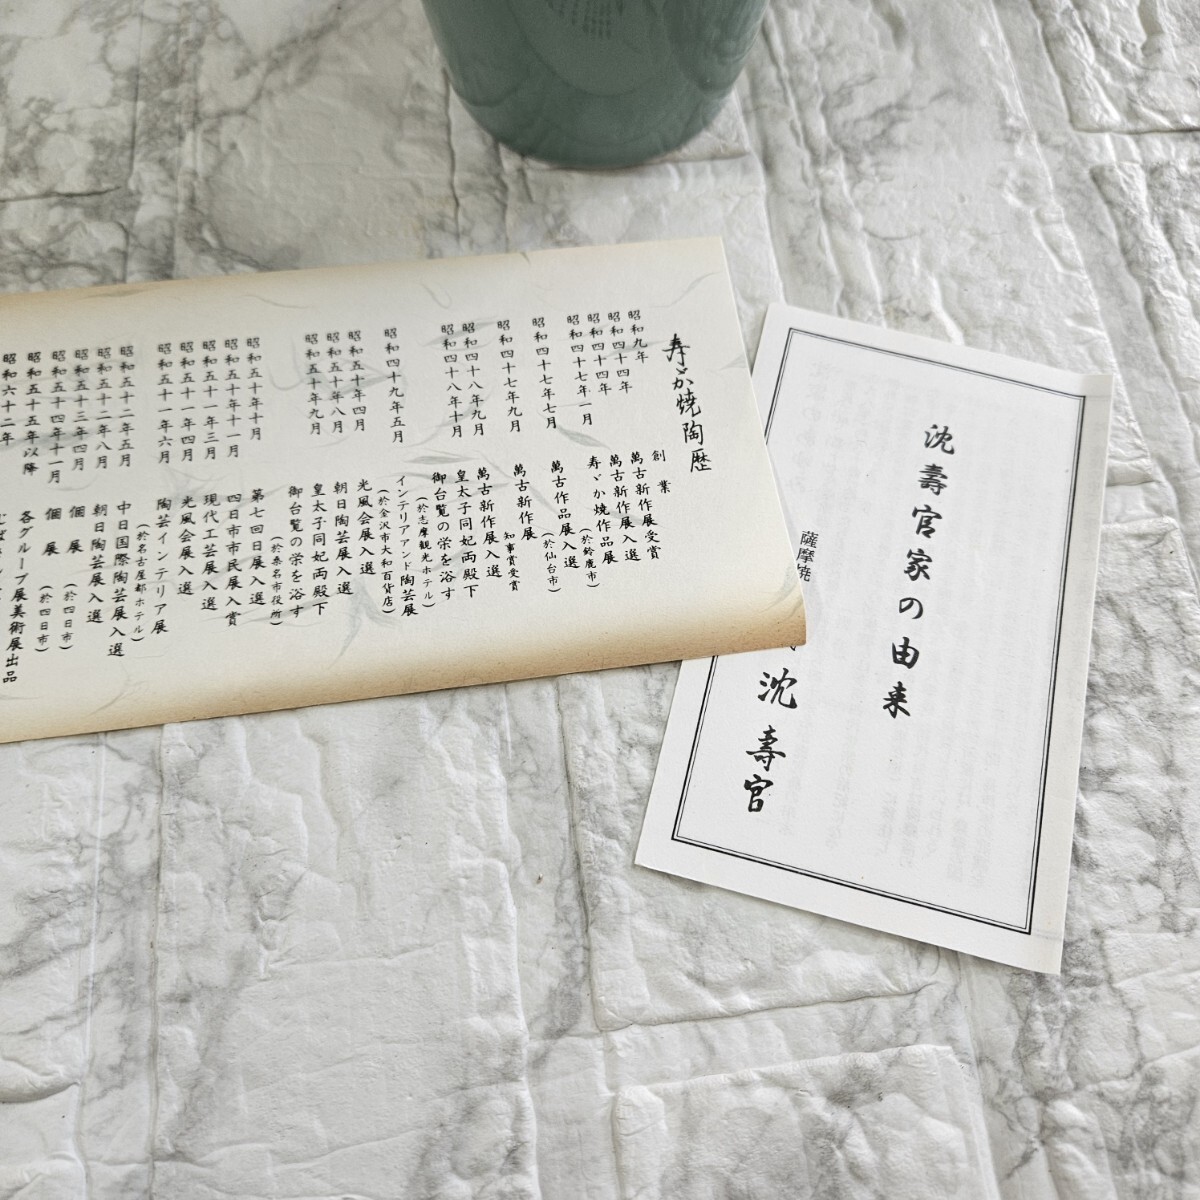 沈壽官家の由来
薩摩焼
沈壽官
寿ゞか焼陶歴
昭和九年 創業
昭和四十四年 萬古新作展受賞
昭和四十四年 萬古新作展入選
昭和四十七年一月 寿ゞか焼作品展
(於鈴鹿市)
昭和四十七年七月 萬古作品展入選
(於仙台市)
昭和四十七年九月 萬古新作展
知事賞受賞
昭和四十八年九月 萬古新作展入選
昭和四十八年十月 皇太子同妃両殿下
御台覧の栄を浴す
(於志摩観光ホテル)
昭和四十九年五月 インテリアアンド陶芸展
(於金沢市大和百貨店)
昭和五十年四月 光風会展入選
昭和五十年八月 朝日陶芸展入選
昭和五十年九月 皇太子同妃両殿下
御台覧の栄を浴す
(於桑名市役所)
昭和五十年十月 第七回日展入選
昭和五十年十一月 四日市市民展入賞
昭和五十一年三月 現代工芸展入選
昭和五十一年四月 光風会展入選
昭和五十一年六月 陶芸インテリア展
(於名古屋都ホテル)
昭和五十二年五月 中日国際陶芸展入選
昭和五十二年八月 朝日陶芸展入選
昭和五十三年四月 個展
(於四日市)
昭和五十四年十一月 個展
(於四日市)
昭和五十五年以降 各グループ展美術展出品
昭和六十二年